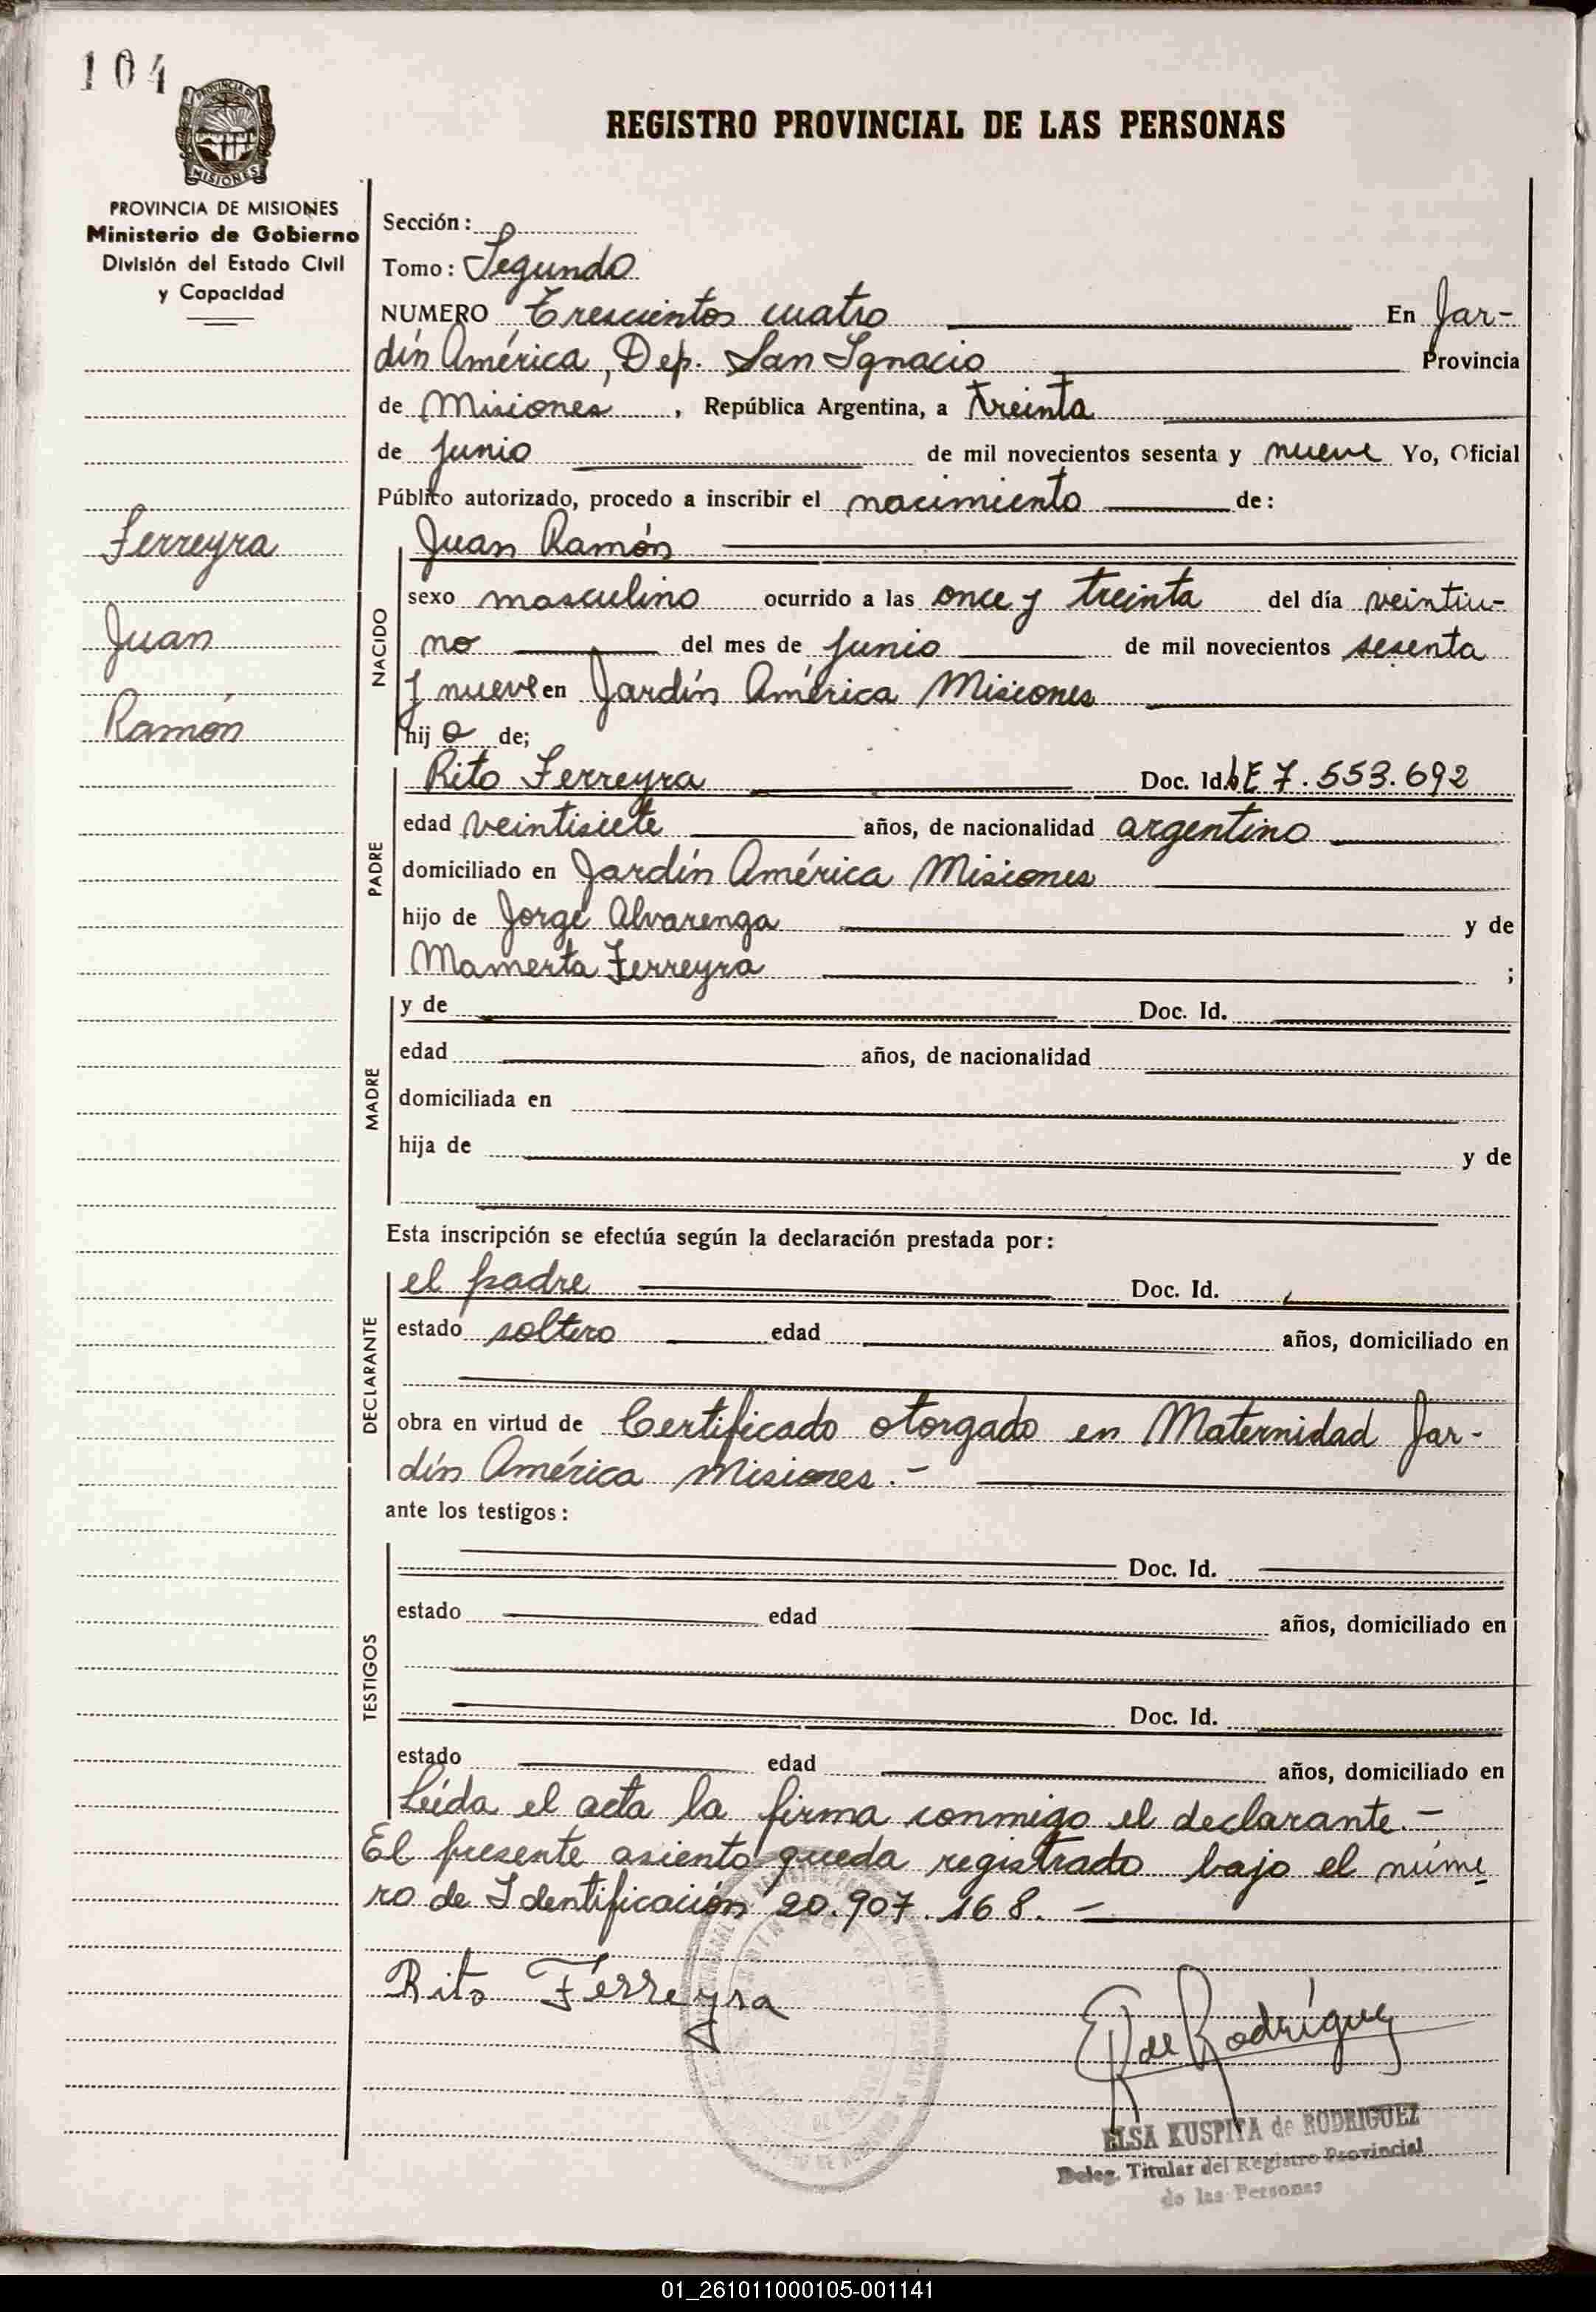 104
PROVINCIA DE
MISIONES
REGISTRO PROVINCIAL DE LAS PERSONAS
PROVINCIA DE MISIONES
Ministerio de Gobierno
División del Estado Civil
y Capacidad
Ferreyra
Juan
Ramón
Sección:
Tomo: Segundo
NUMERO Trescientos cuatro En Jar-
dín América, Dep. San Ignacio Provincia
de Misiones, República Argentina, a treinta
de junio de mil novecientos sesenta y nueve Yo, Oficial
Público autorizado, procedo a inscribir el nacimiento de:
NACIDO
Juan Ramón
sexo masculino ocurrido a las once y treinta del día veintiu-
no del mes de junio de mil novecientos sesenta
y nueve en Jardín América Misiones
hij o de;
PADRE
Rito Ferreyra Doc. Id. LE 7.553.692
edad veintisiete años, de nacionalidad argentino
domiciliado en Jardín América Misiones
hijo de Jorge Alvarenga y de
Mamerta Ferreyra ;
MADRE
y de Doc. Id.
edad años, de nacionalidad
domiciliada en
hija de y de
Esta inscripción se efectúa según la declaración prestada por:
DECLARANTE
el padre Doc. Id.
estado soltero edad años, domiciliado en
obra en virtud de Certificado otorgado en Maternidad Jar-
dín América Misiones.-
ante los testigos:
TESTIGOS
Doc. Id.
estado edad años, domiciliado en
Doc. Id.
estado edad años, domiciliado en
Leída el acta la firma conmigo el declarante.-
El presente asiento queda registrado bajo el núme
ro de Identificación 20.907.168.-
Rito Ferreyra
E K de Rodríguez
ELSA KUSPITA de RODRIGUEZ
Deleg. Titular del Registro Provincial
de las Personas
01_261011000105-001141